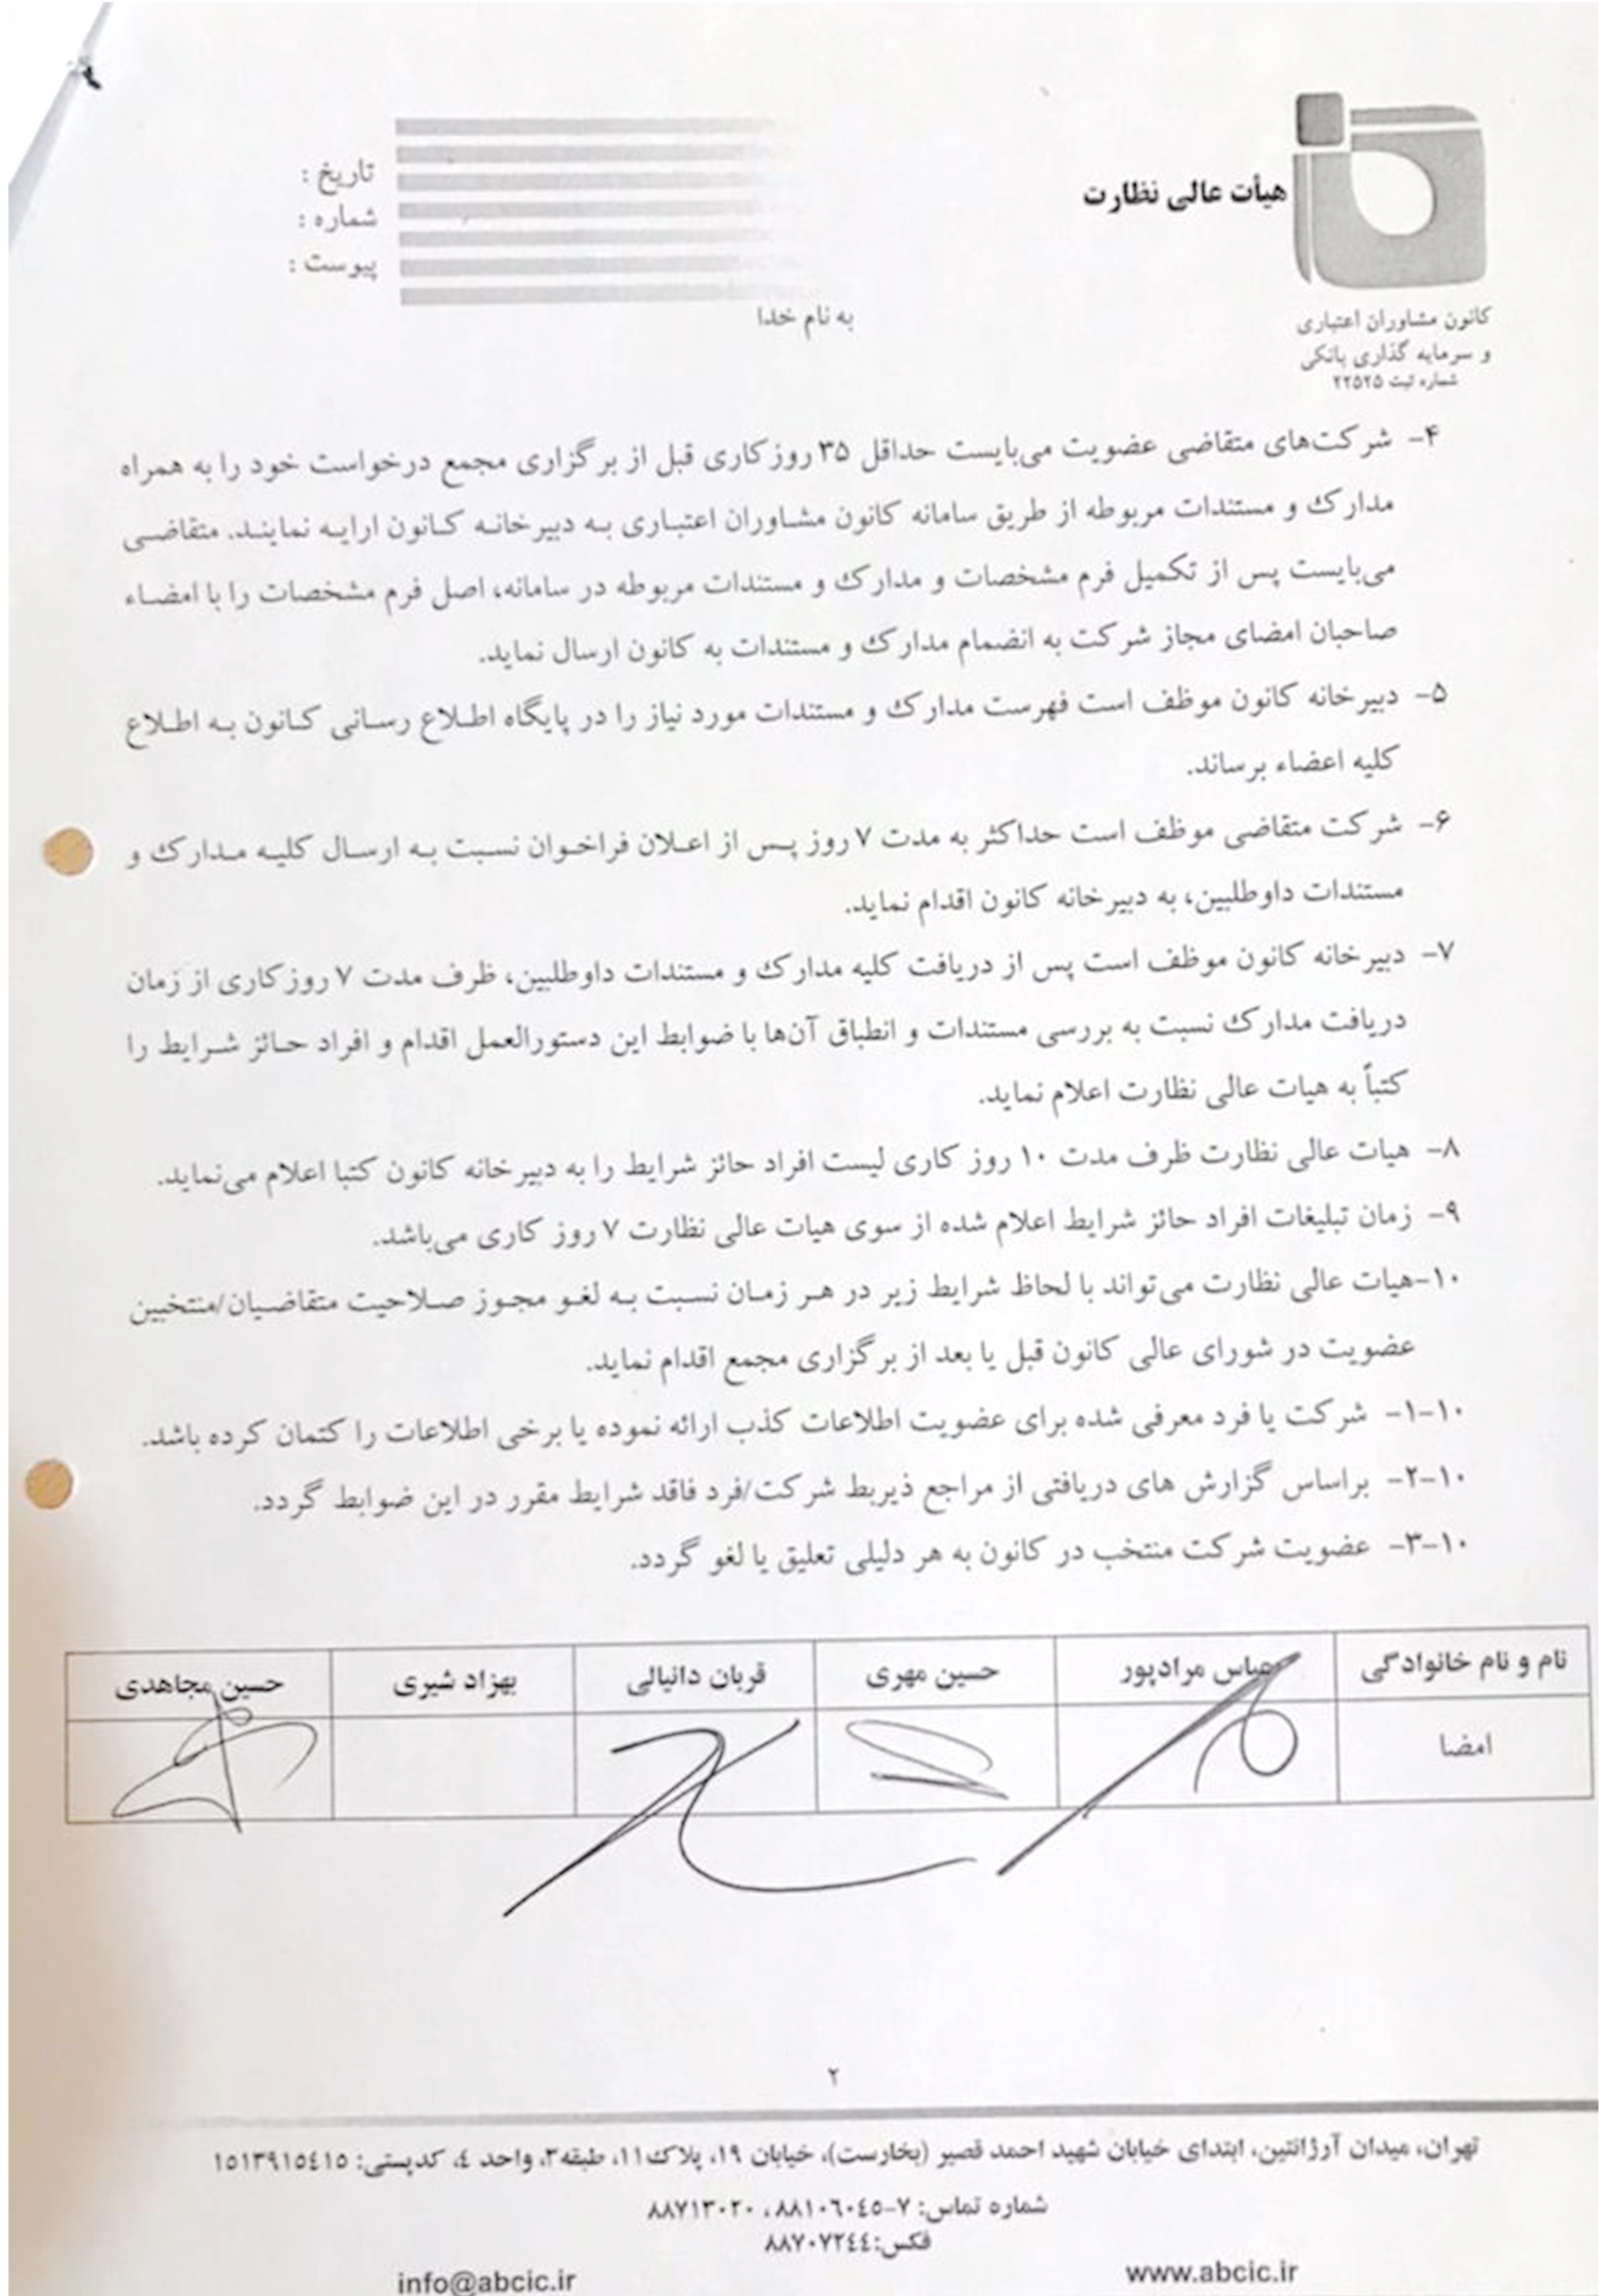 هیأت عالی نظارت
کانون مشاوران اعتباری
و سرمایه گذاری بانکی
شماره ثبت ۲۲۵۲۵
تاریخ :
شماره :
پیوست :
به نام خدا
۴- شرکت‌های متقاضی عضویت می‌بایست حداقل ۳۵ روز کاری قبل از برگزاری مجمع درخواست خود را به همراه
مدارک و مستندات مربوطه از طریق سامانه کانون مشاوران اعتباری به دبیرخانه کانون ارایه نمایند. متقاضی
می‌بایست پس از تکمیل فرم مشخصات و مدارک و مستندات مربوطه در سامانه، اصل فرم مشخصات را با امضاء
صاحبان امضای مجاز شرکت به انضمام مدارک و مستندات به کانون ارسال نماید.
۵- دبیرخانه کانون موظف است فهرست مدارک و مستندات مورد نیاز را در پایگاه اطلاع رسانی کانون به اطلاع
کلیه اعضاء برساند.
۶- شرکت متقاضی موظف است حداکثر به مدت ۷ روز پس از اعلان فراخوان نسبت به ارسال کلیه مدارک و
مستندات داوطلبین، به دبیرخانه کانون اقدام نماید.
۷- دبیرخانه کانون موظف است پس از دریافت کلیه مدارک و مستندات داوطلبین، ظرف مدت ۷ روز کاری از زمان
دریافت مدارک نسبت به بررسی مستندات و انطباق آن‌ها با ضوابط این دستورالعمل اقدام و افراد حائز شرایط را
کتباً به هیات عالی نظارت اعلام نماید.
۸- هیات عالی نظارت ظرف مدت ۱۰ روز کاری لیست افراد حائز شرایط را به دبیرخانه کانون کتبا اعلام می‌نماید.
۹- زمان تبلیغات افراد حائز شرایط اعلام شده از سوی هیات عالی نظارت ۷ روز کاری می‌باشد.
۱۰-هیات عالی نظارت می‌تواند با لحاظ شرایط زیر در هر زمان نسبت به لغو مجوز صلاحیت متقاضیان/منتخبین
عضویت در شورای عالی کانون قبل یا بعد از برگزاری مجمع اقدام نماید.
۱۰-۱- شرکت یا فرد معرفی شده برای عضویت اطلاعات کذب ارائه نموده یا برخی اطلاعات را کتمان کرده باشد.
۱۰-۲- براساس گزارش های دریافتی از مراجع ذیربط شرکت/فرد فاقد شرایط مقرر در این ضوابط گردد.
۱۰-۳- عضویت شرکت منتخب در کانون به هر دلیلی تعلیق یا لغو گردد.
نام و نام خانوادگی عباس مرادپور حسین مهری قربان دانیالی بهزاد شیری حسین مجاهدی
امضا
۲
تهران، میدان آرژانتین، ابتدای خیابان شهید احمد قصیر (بخارست)، خیابان ۱۹، پلاک ۱۱، طبقه ۳، واحد ٤، کدپستی: ۱۵۱۳۹۱۵٤۱۵
شماره تماس: ۷-۸۸۱۰٦۰٤۵ ، ۸۸۷۱۳۰۲۰
فکس: ۸۸۷۰۷۲٤٤
www.abcic.ir
info@abcic.ir